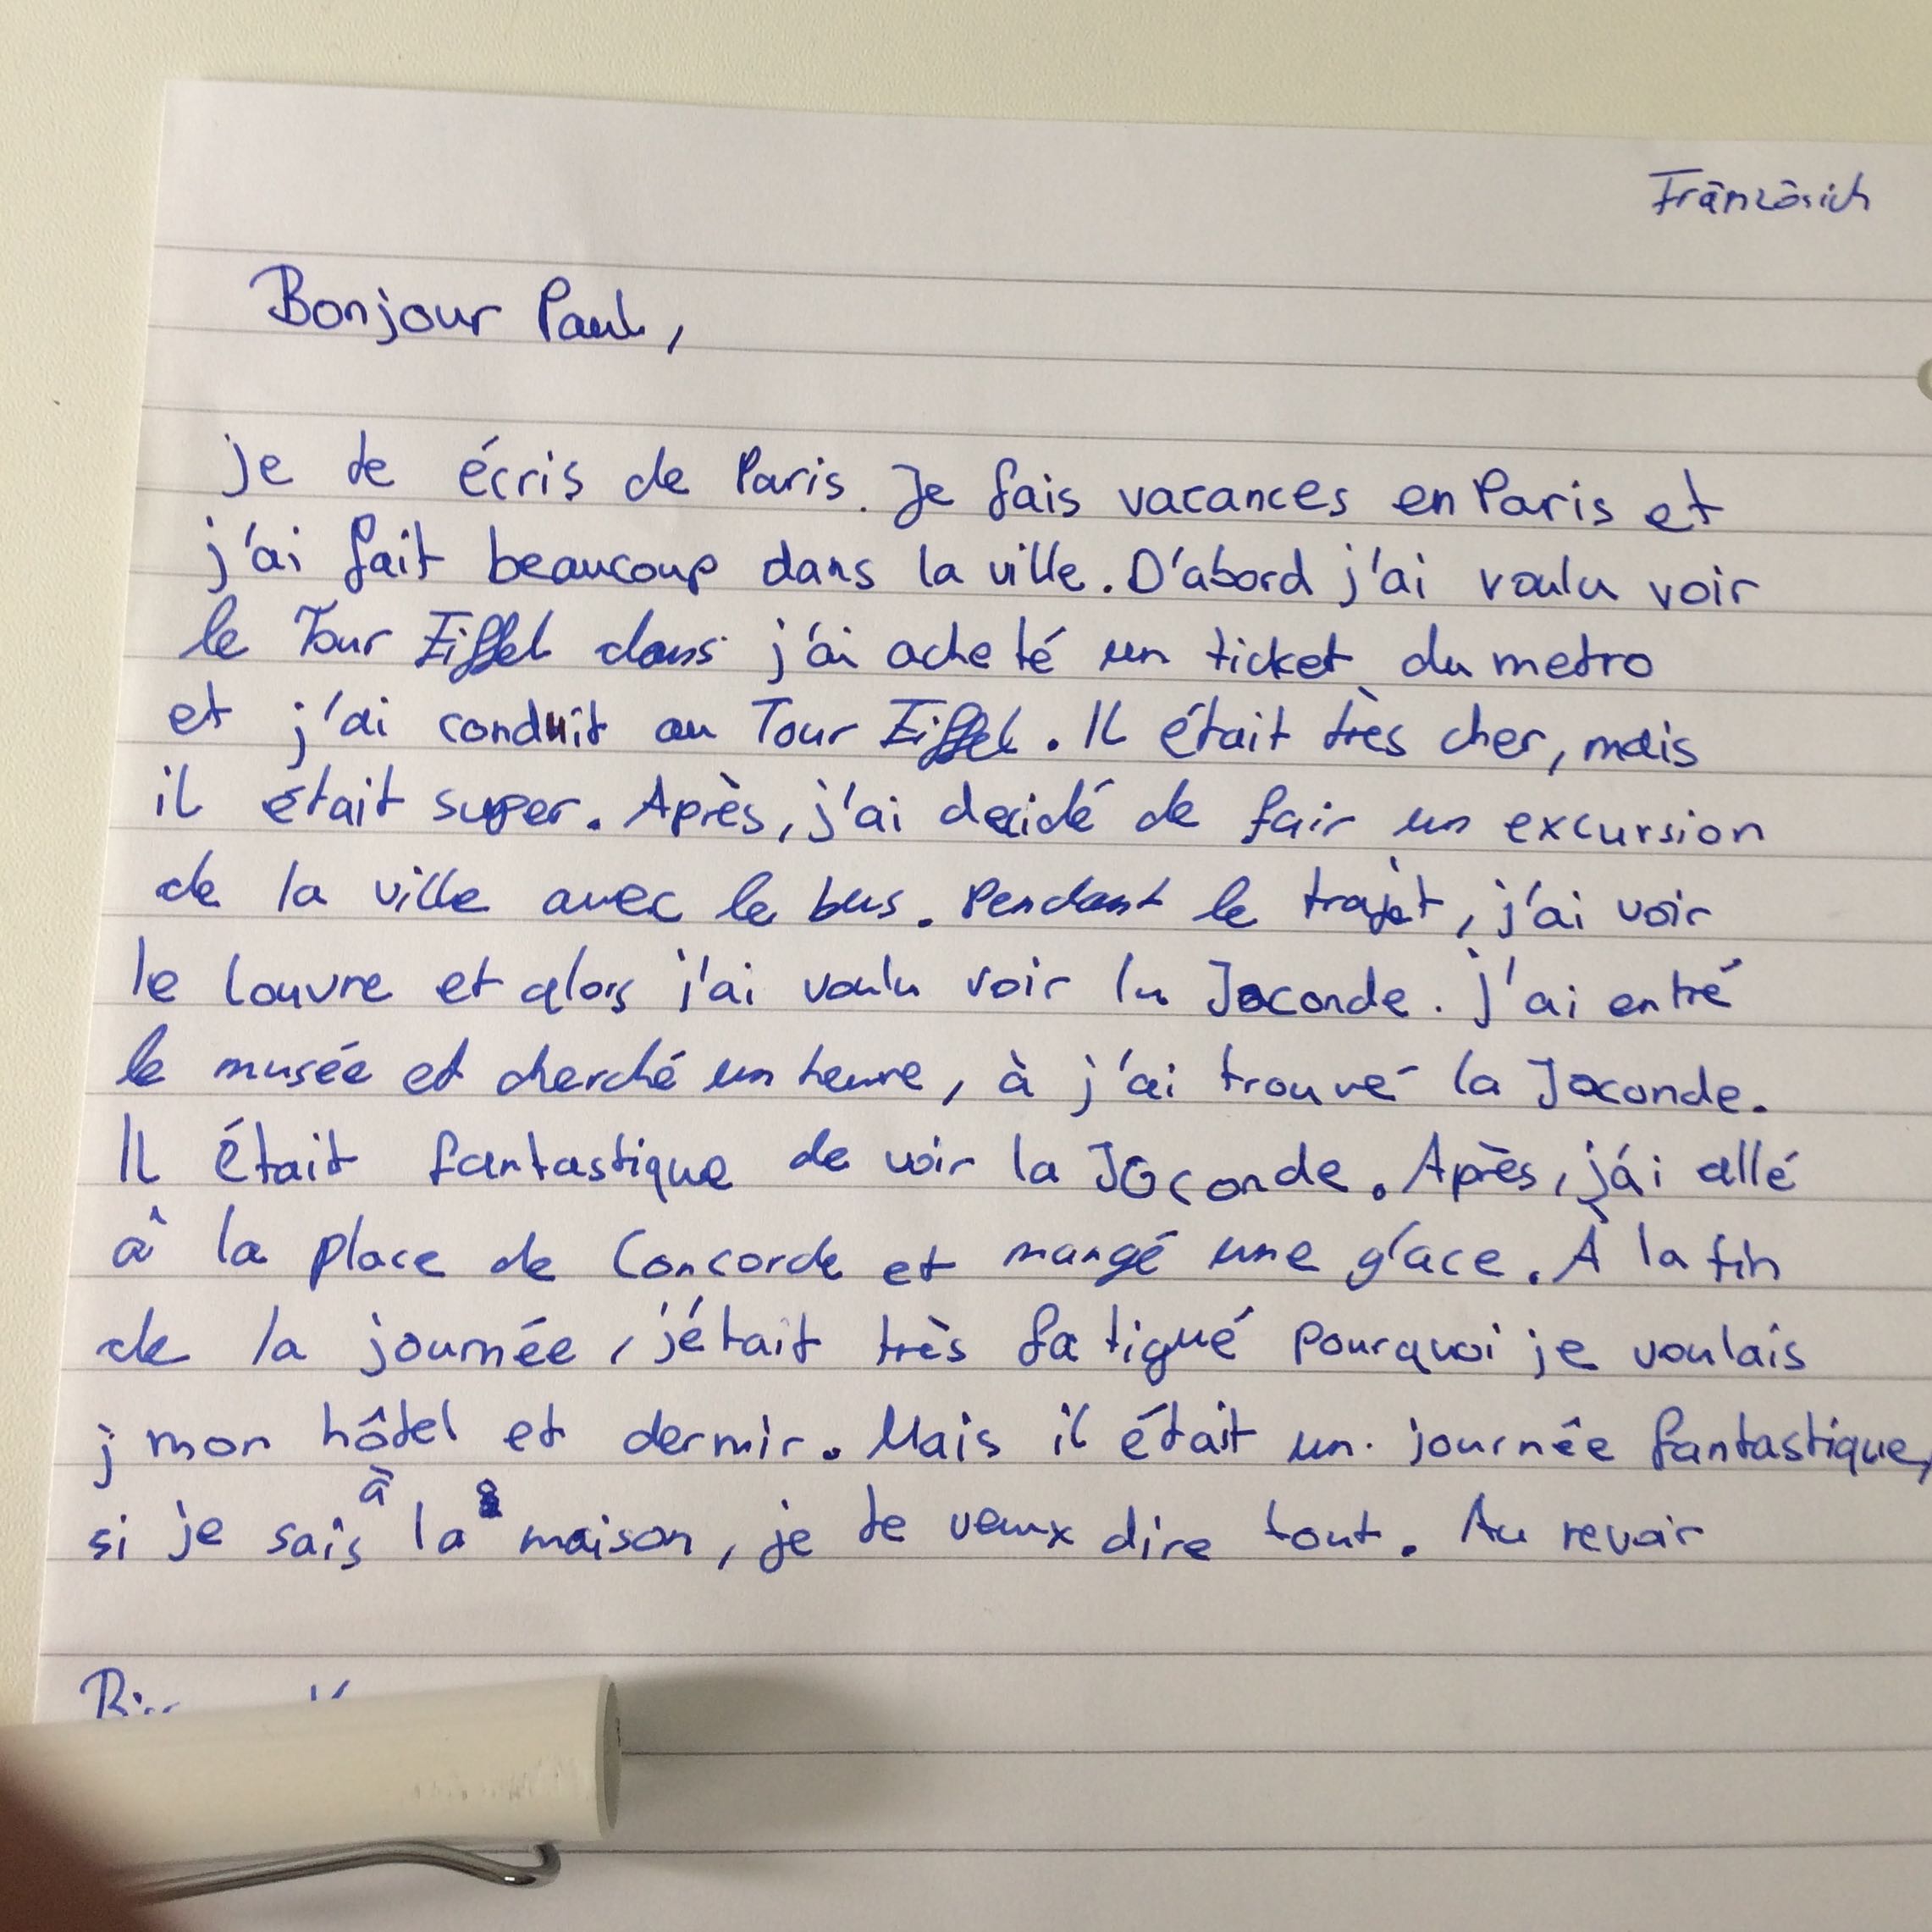 Französich
Bonjour Paul,
je te écris de Paris. Je fais vacances en Paris et
j'ai fait beaucoup dans la ville. D'abord j'ai voulu voir
le Tour Eiffel dans j'ai acheté un ticket du metro
et j'ai conduit au Tour Eiffel. Il était très cher, mais
il était super. Après, j'ai decidé de fair un excursion
de la ville avec le bus. Pendant le trajet, j'ai voir
le Louvre et alors j'ai voulu voir la Joconde. j'ai entré
le musée et cherché un heure, à j'ai trouvé la Joconde.
Il était fantastique de voir la Joconde. Après, j'ái allé
à la place de Concorde et mangé une glace. À la fin
de la journée, j'était très fatigué pourquoi je voulais
j mon hôtel et dermir. Mais il était un journée fantastique,
si je sais à la maison, je te veux dire tout. Au revoir